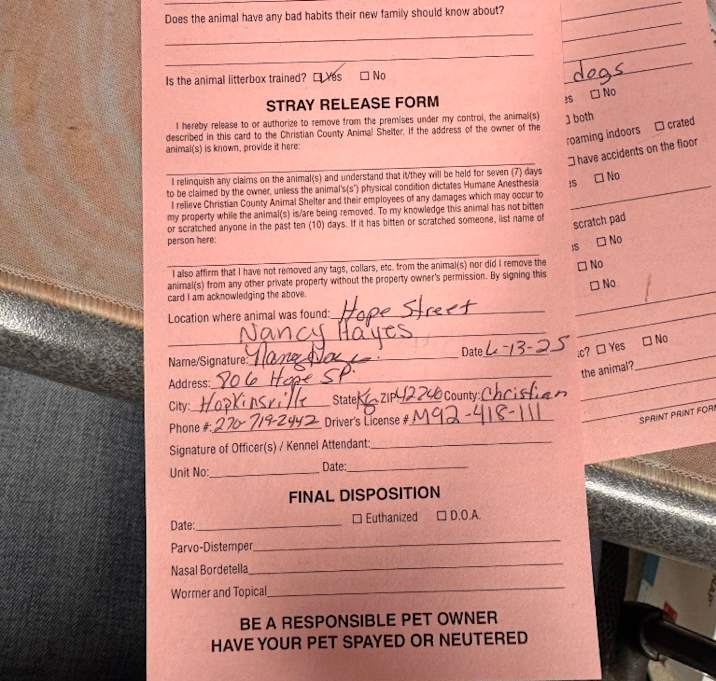 Does the animal have any bad habits their new family should know about?
Is the animal litterbox trained? ☐ Yes ☐ No
STRAY RELEASE FORM
I hereby release to or authorize to remove from the premises under my control, the animal(s)
described in this card to the Christian County Animal Shelter. If the address of the owner of the
animal(s) is known, provide it here:
I relinquish any claims on the animal(s) and understand that it/they will be held for seven (7) days
to be claimed by the owner, unless the animal's(s') physical condition dictates Humane Anesthesia
I relieve Christian County Animal Shelter and their employees of any damages which may occur to
my property while the animal(s) is/are being removed. To my knowledge this animal has not bitten
or scratched anyone in the past ten (10) days. If it has bitten or scratched someone, list name of
person here:
I also affirm that I have not removed any tags, collars, etc. from the animal(s) nor did I remove the
animal(s) from any other private property without the property owner's permission. By signing this
card I am acknowledging the above.
Location where animal was found: Hope Street
Nancy Hayes
Name/Signature: Nancy Hayes Date 6-13-25
Address: 906 Hope St.
City: Hopkinsville State Ky ZIP 42240 County: Christian
Phone #: 270-719-2442 Driver's License # M92-418-111
Signature of Officer(s) / Kennel Attendant:
Unit No: Date:
FINAL DISPOSITION
Date: ☐ Euthanized ☐ D.O.A.
Parvo-Distemper
Nasal Bordetella
Wormer and Topical
BE A RESPONSIBLE PET OWNER
HAVE YOUR PET SPAYED OR NEUTERED
dogs
☐ No
both
roaming indoors ☐ crated
☐ have accidents on the floor
☐ No
scratch pad
☐ No
☐ No
☐ No
☐ Yes ☐ No
the animal?
SPRINT PRINT